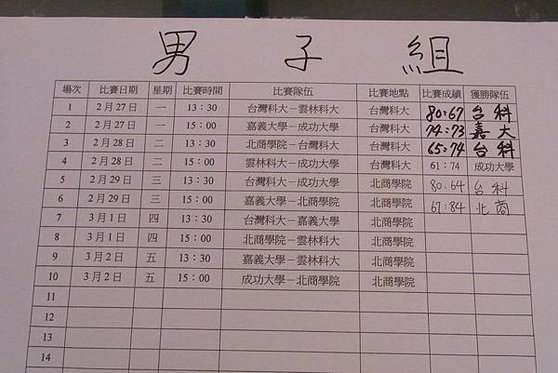 男子組
場次 比賽日期 星期 比賽時間 比賽隊伍 比賽地點 比賽成績 獲勝隊伍
1 2月27日 一 13:30 台灣科大－雲林科大 台灣科大 80:67 台科
2 2月27日 一 15:00 嘉義大學－成功大學 台灣科大 74:73 嘉大
3 2月28日 二 13:30 北商學院－台灣科大 台灣科大 65:74 台科
4 2月28日 二 15:00 雲林科大－成功大學 台灣科大 61:74 成功大學
5 2月29日 三 13:30 台灣科大－成功大學 北商學院 80:64 台科
6 2月29日 三 15:00 嘉義大學－北商學院 北商學院 67:84 北商
7 3月1日 四 13:30 台灣科大－嘉義大學 北商學院
8 3月1日 四 15:00 北商學院－雲林科大 北商學院
9 3月2日 五 13:30 嘉義大學－雲林科大 北商學院
10 3月2日 五 15:00 成功大學－北商學院 北商學院
11
12
13
14